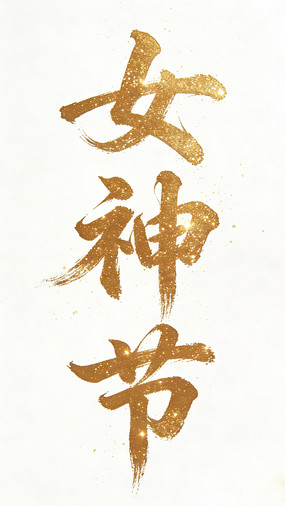 女神节